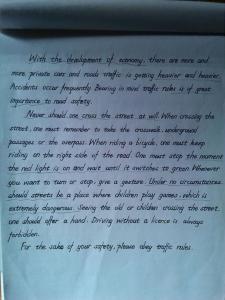 With the development of economy, there are more and
more private cars and roads traffic is getting heavier and heavier.
Accidents occur frequently. Bearing in mind traffic rules is of great
importance to road safety.
Never should one cross the street at will. When crossing the
street, one must remember to take the crosswalk, underground
passages or the overpass. When riding a bicycle, one must keep
riding on the right side of the road. One must stop the moment
the red light is on and wait until it switches to green. Whenever
you want to turn or stop, give a gesture. Under no circumstances
should streets be a place where children play games, which is
extremely dangerous. Seeing the old or children crossing the street,
one should offer a hand. Driving without a licence is always
forbidden.
For the sake of your safety, please obey traffic rules.